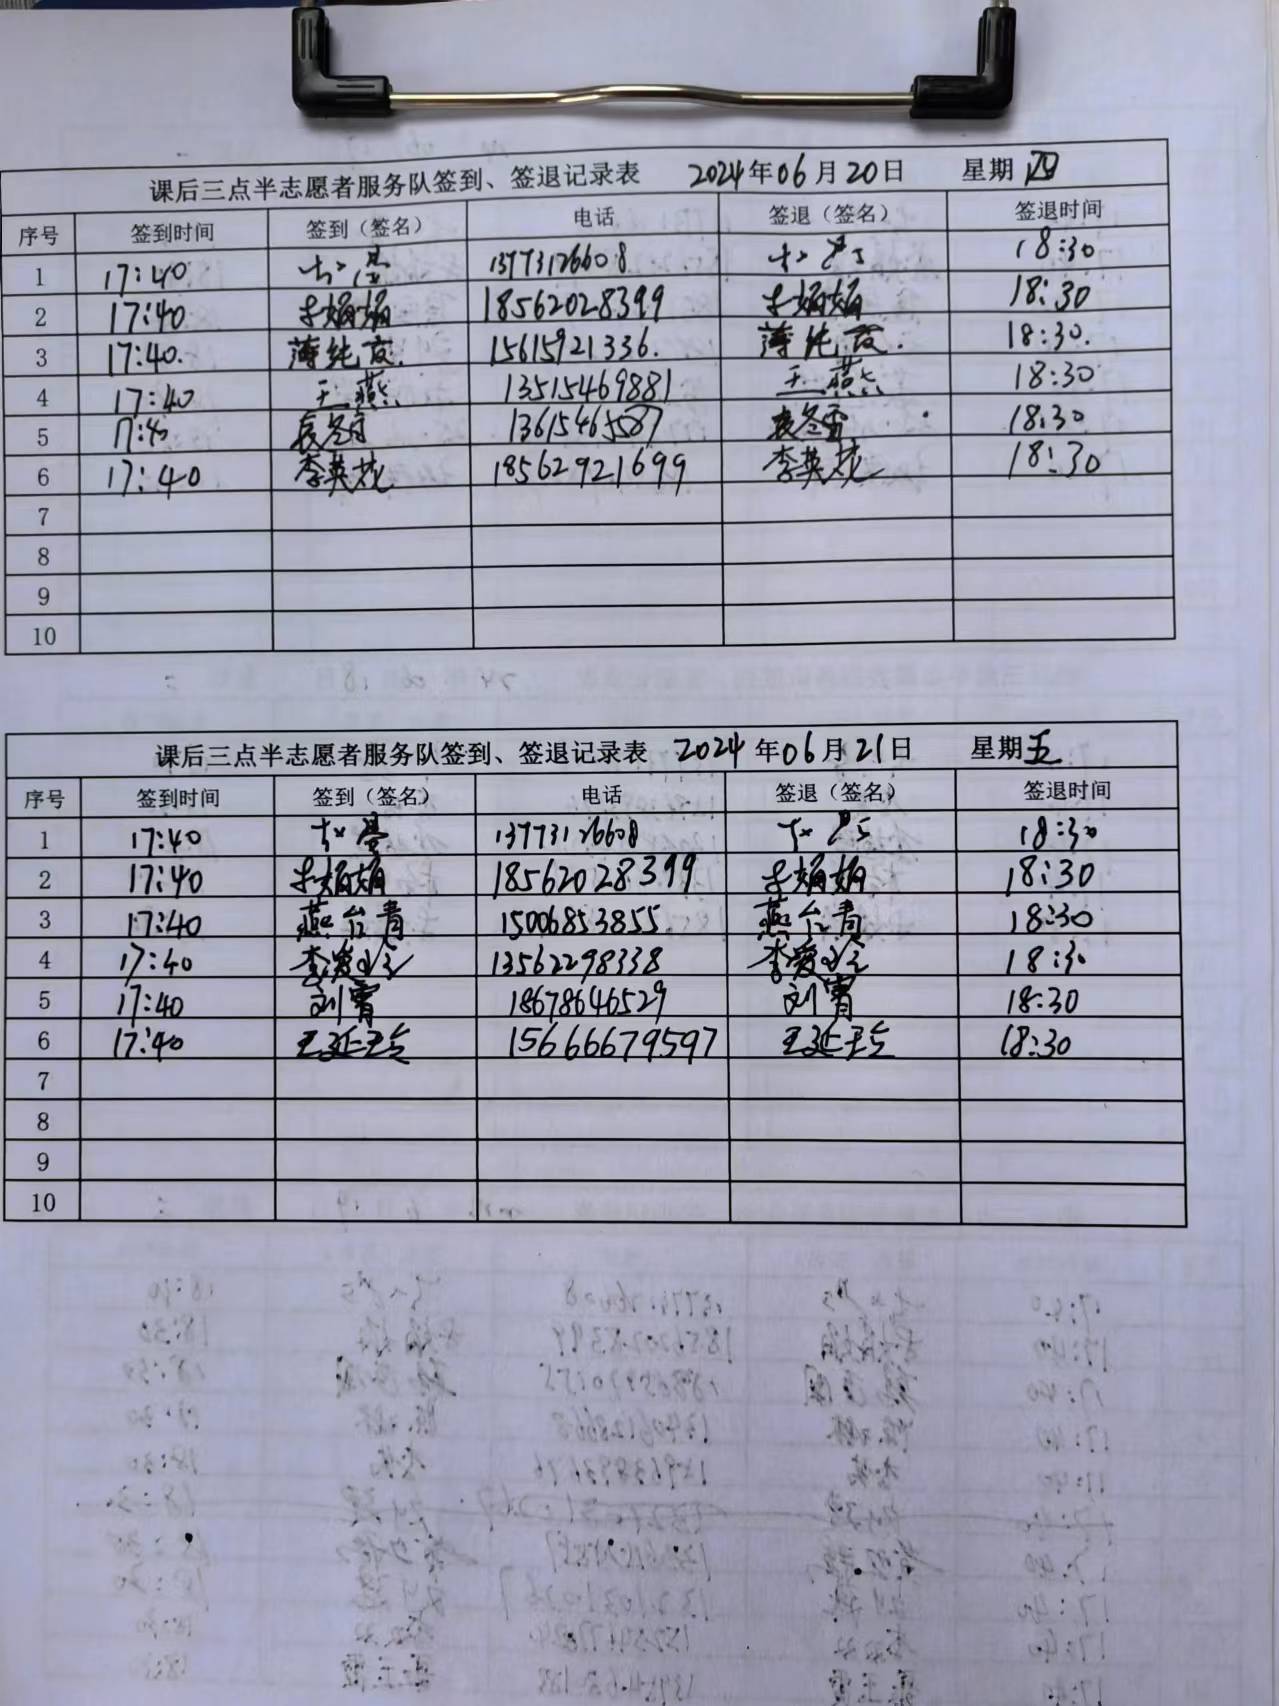 课后三点半志愿者服务队签到、签退记录表 2024年06月20日 星期四
序号 签到时间 签到（签名） 电话 签退（签名） 签退时间
1 17:40 13773126608 18:30
2 17:40 李娟娟 18562028399 李娟娟 18:30
3 17:40. 薄纯 15615921336. 薄纯 18:30.
4 17:40 王燕 13515469881 王燕 18:30
5 17:40 袁冬雪 13615465587 袁冬雪 18:30
6 17:40 李英花 18562921699 李英花 18:30
7
8
9
10
课后三点半志愿者服务队签到、签退记录表 2024年06月21日 星期五
序号 签到时间 签到（签名） 电话 签退（签名） 签退时间
1 17:40 13773126608 18:30
2 17:40 李娟娟 18562028399 李娟娟 18:30
3 17:40 燕台青 15006853855 燕台青 18:30
4 17:40 李爱玲 13562298338 李爱玲 18:30
5 17:40 刘霄 18678646529 刘霄 18:30
6 17:40 王延玲 15666679597 王延玲 18:30
7
8
9
10